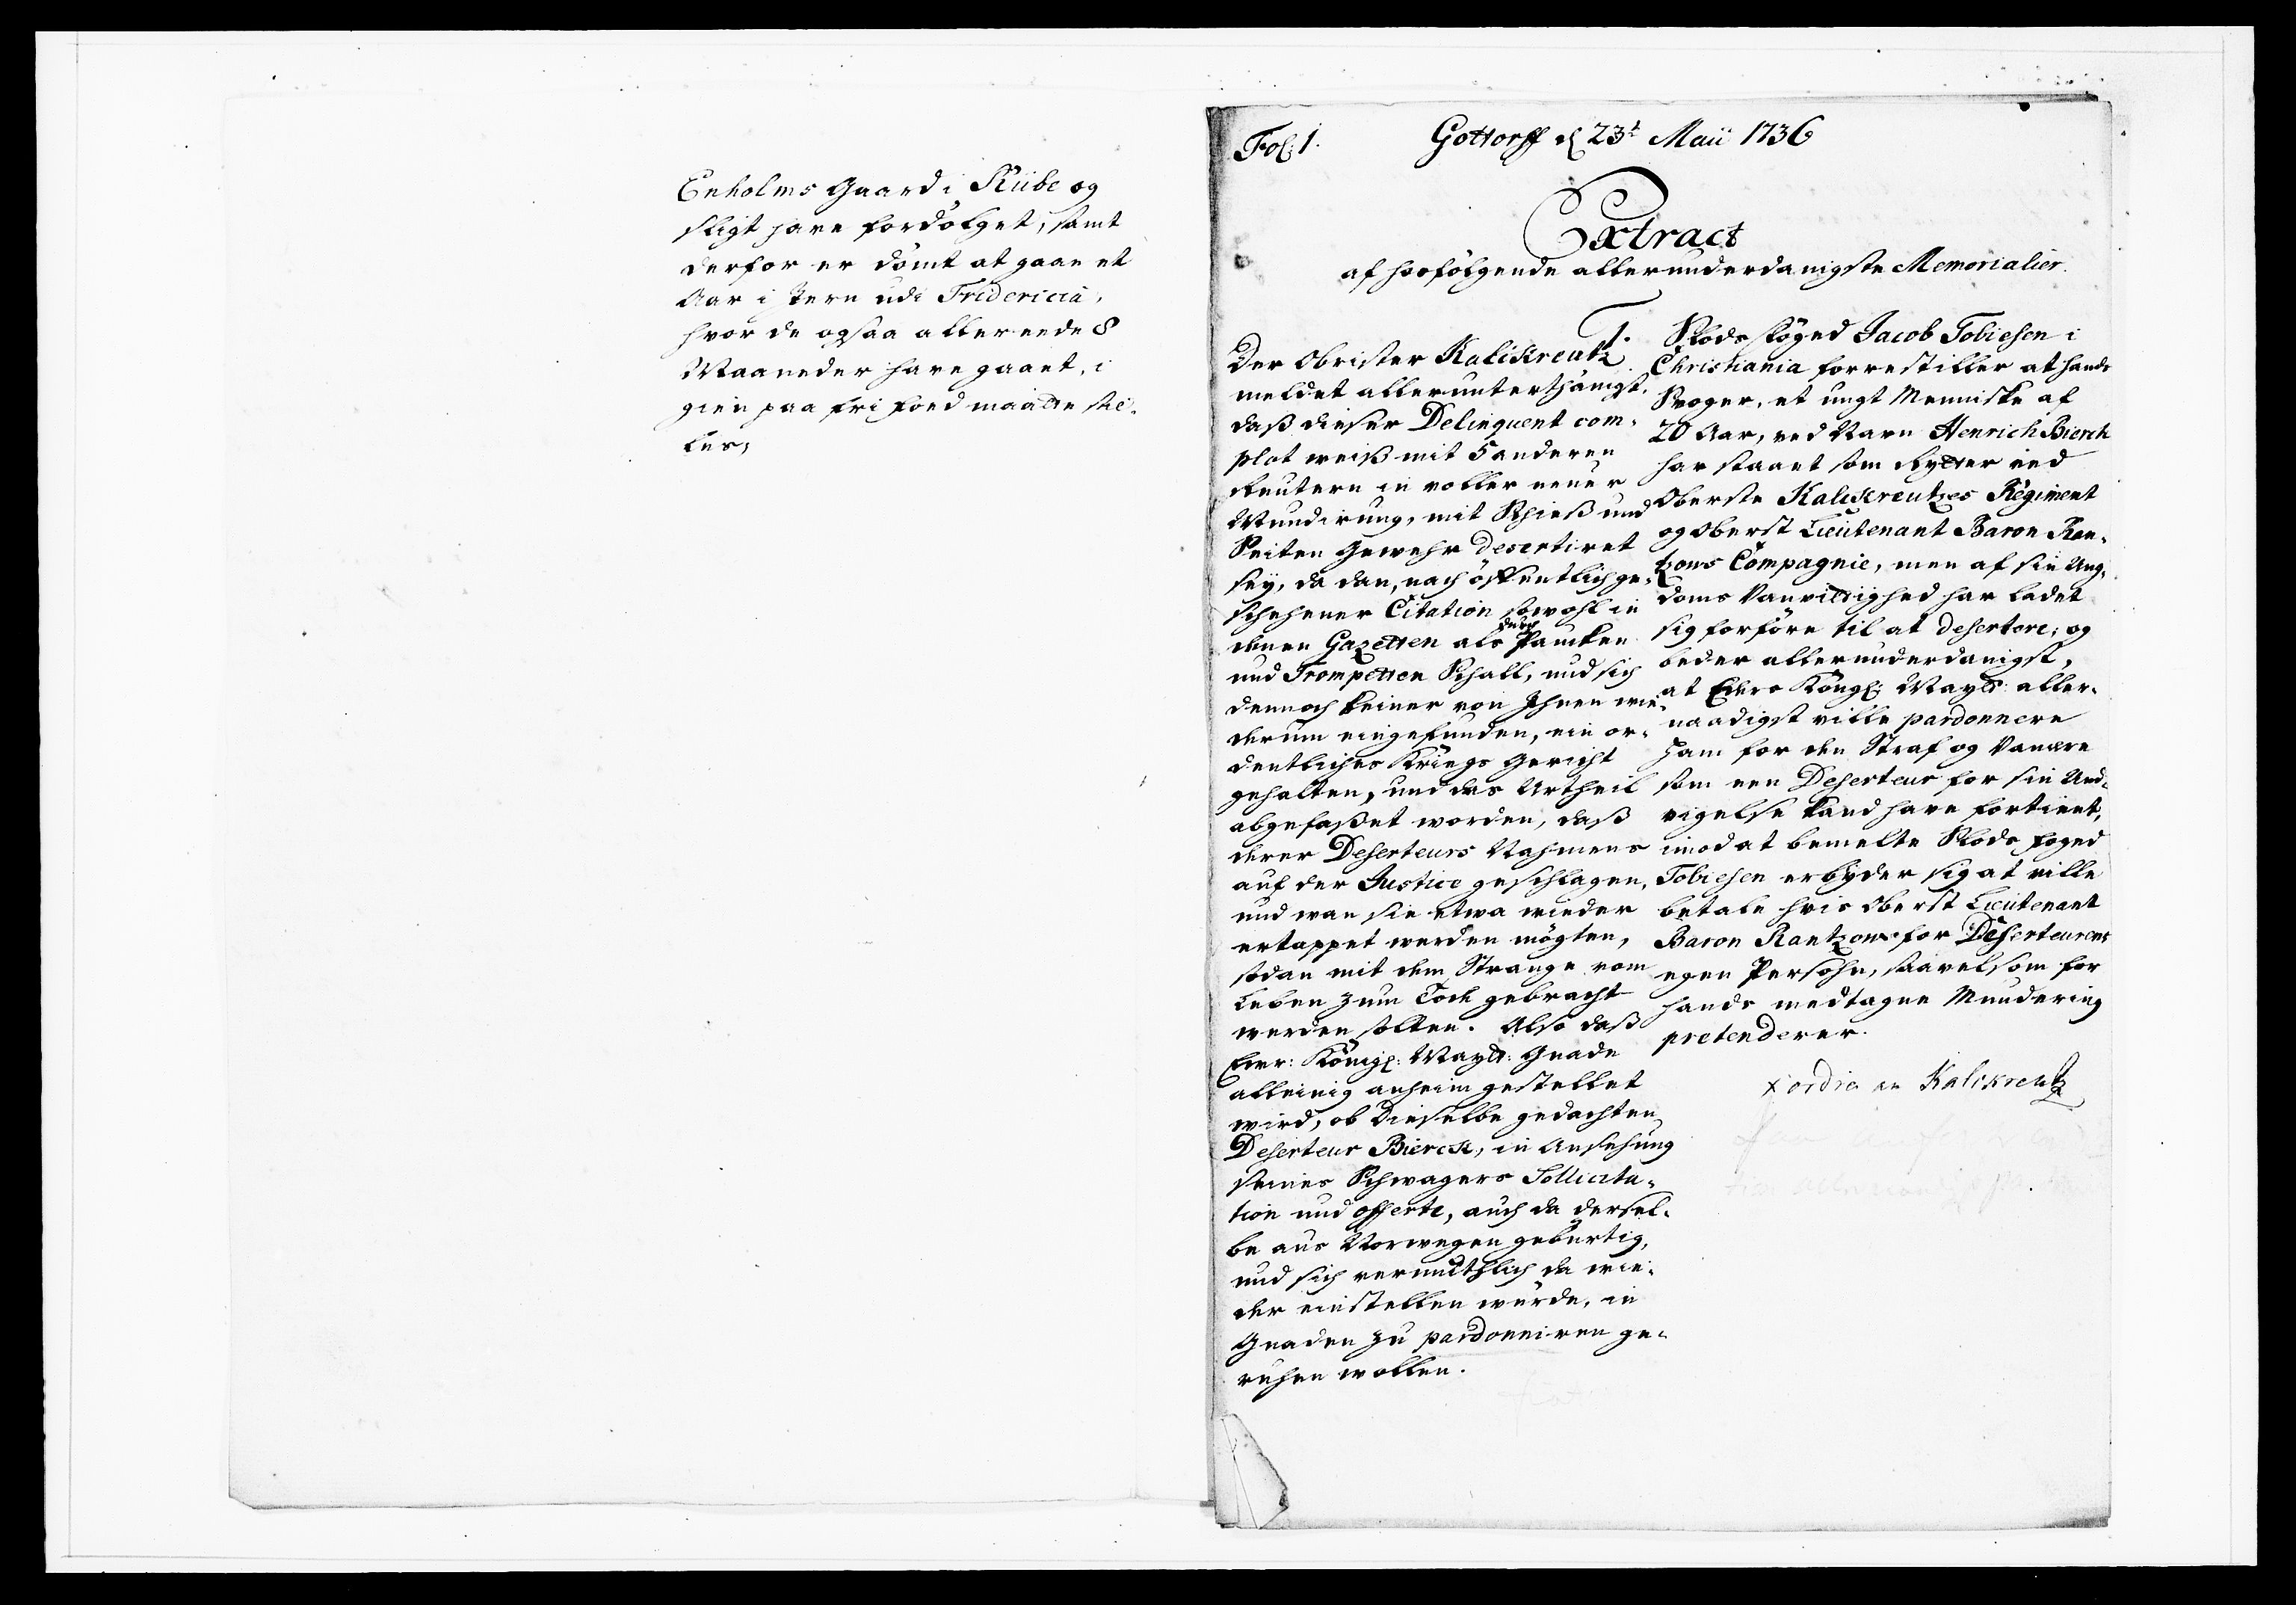 Enholms Gaard i Riibe og
sligt have fordölget, samt
derfor er dömt at gaae et
Aar i Jern udi Fridericia,
hvor de ogsaa allereede 8
Maaneder have gaaet, i
gien paa fri foed maatte stil-
les,
Fol: 1.
Gottorff d 23t Maii 1736
Extract
af hosfölgende allerunderdanigste Memorialier.
1.
Der Obrister Kalckreutz
meldet allerunterthänigst.
daß dieser Delinquent com-
plot weiß mit 5 anderen
Reutern in voller neuer
Mundirung, mit Schieß und
Seiten Gewehr desertiret
sey, da dan, nach öffentlich ge-
schehener Citation sowohl in
denen Gazetten als durch Paucken
und Trompetten Schall, und sich
dennoch keiner von Ihnen wie-
derum eingefunden, ein or-
dentliches Kriegs Gericht
gehalten, und das Urtheil
abgefaßet worden, daß
derer Deserteurs Nahmens
auf der Justice geschlagen,
und wan sie etwa wieder
ertappet werden mögten,
sodan mit dem Strange vom
Leben zum Tode gebracht
werden solten. Also daß
Ewr: Königl: Maytt: Gnade
alleinig anheim gestellet
wird, ob Dieselbe gedachten
Deserteur Bierck, in Ansehung
seines Schwagers Sollicita-
tion und offerte, auch da dersel-
be aus Norwegen gebürtig,
und sich vermuthlich da wie-
der einstellen würde, in
Gnaden zu pardonniren ge-
ruhen wollen.
Slods foged Jacob Tobiesen i
Christiania forrestiller at hands
Svoger, et ungt Menniske af
20 Aar, ved Navn Henrich Bierck
har staaet som Rytter ved
Oberste Kalckreutzes Regiment
og Oberst Lieutenant Baron Ran-
tzous Compagnie, men af sin Ung-
doms Vanvittighed har ladet
sig forföre til at desertere; og
beder allerunderdanigst,
at Eders Kongl: Maytt: aller-
naadigst ville pardonnere
ham for den Straf og Vanære
som een Deserteur for sin Und-
vigelse kand have fortient,
imod at bemelte Slods foged
Tobiesen erbyder sig at ville
betale hvis Oberst Lieutenant
Baron Rantzow for Deserteurens
egen Persohn, saavelsom for
hands medtagne Mundering
prætenderer.
x ordre an Kalckreutz